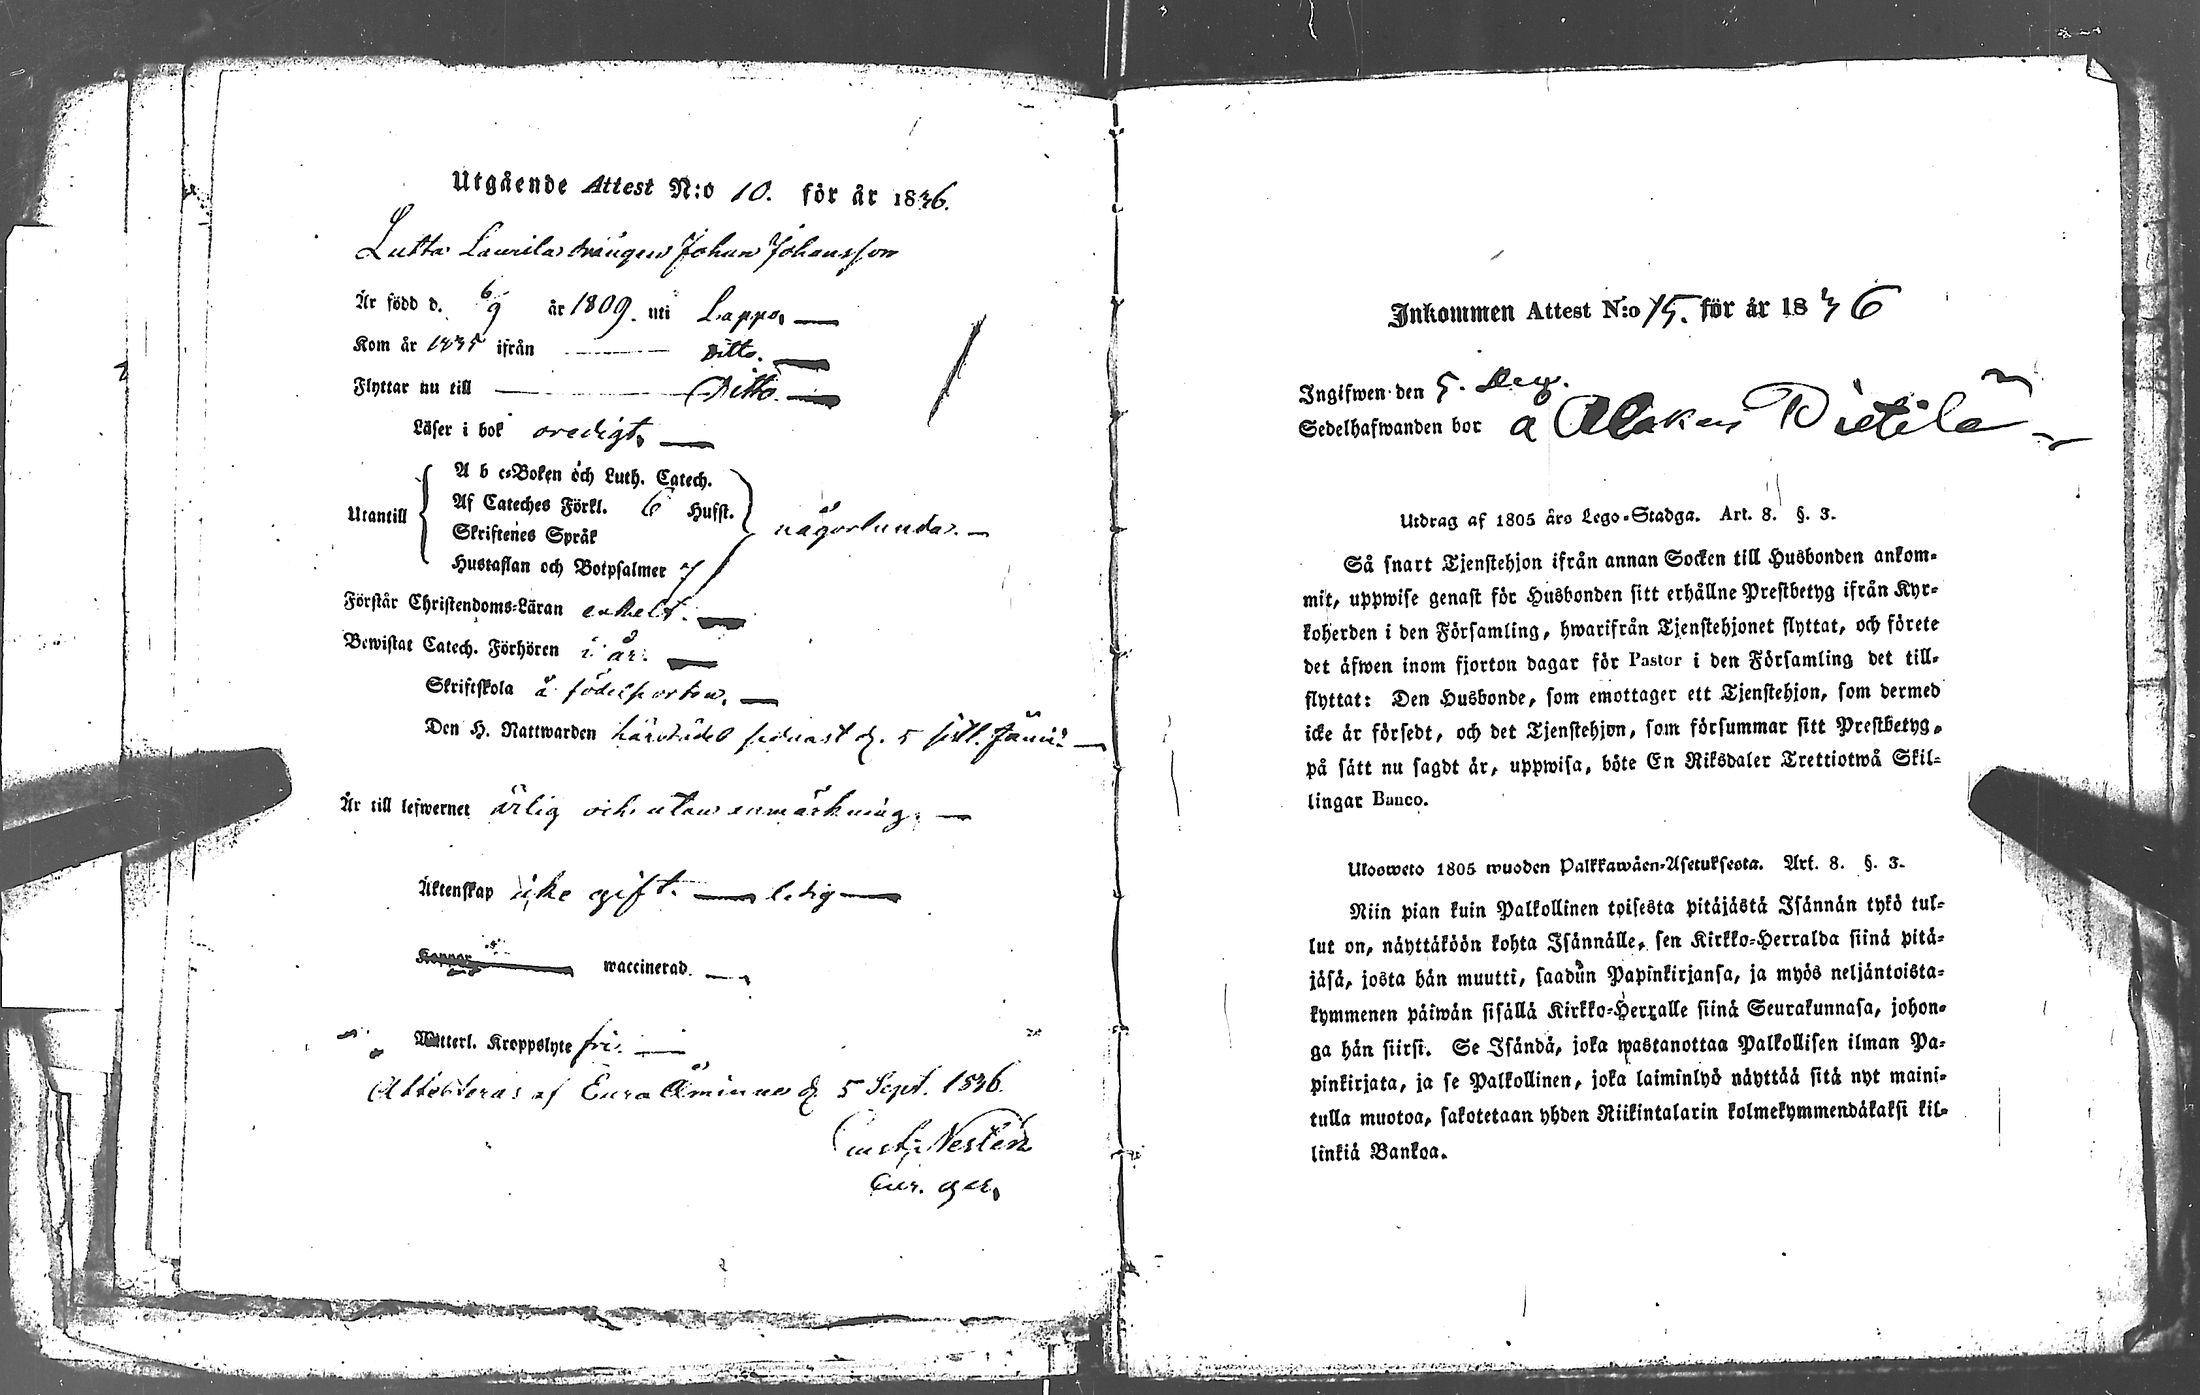 Utgående Attest N:o 10. för år 1836.
Lutta Laurila drängen Johan Johansson
Är född d. 6/9 år 1809. uti Lappo.
Kom år 1835 ifrån Ditto.
Flyttar nu till Ditto.
Läser i bok oredigt.
A b c-Boken och Luth. Catech.
Af Cateches Förkl. 6 Hufst.
Utantill någorlunda.
Skriftenes Språk
Hustaflan och Botpsalmer
Förstår Christendoms-Läran enkelt.
Bewistat Catech. Förhören i år.
Skriftskola å födelseorten.
Den H. Nattwarden härstädes sednast d. 5 sistl. Junii
Är till lefwernet ärlig och utan anmärkning.
Äktenskap icke gift. ledig
Koppor waccinerad.
Witterl. Kroppslyte fri.
Attesteras af Eura Åminne d. 5 Sept. 1836.
Gust. Neslér
Cur. ger.
Inkommen Attest N:o 15. för år 1836
Ingifwen den 5. Dec.
Sedelhafwanden bor å Alakas Pietilä
Utdrag af 1805 års Lego-Stadga. Art. 8. §. 3.
Så snart Tjenstehjon ifrån annan Socken till Husbonden ankom-
mit, uppwise genast för Husbonden sitt erhållne Prestbetyg ifrån Kyr-
koherden i den Församling, hwarifrån Tjenstehjonet flyttat, och förete
det äfwen inom fjorton dagar för Pastor i den Församling det till-
flyttat: Den Husbonde, som emottager ett Tjenstehjon, som dermed
icke är försedt, och det Tjenstehjon, som försummar sitt Prestbetyg,
på sätt nu sagdt är, uppwisa, böte En Riksdaler Trettiotwå Skil-
lingar Banco.
Ulosweto 1805 wuoden Palkkawäen-Asetuksesta. Art. 8. §. 3.
Niin pian kuin Palkollinen toisesta pitäjästä Isännän tykö tul-
lut on, näyttäköön kohta Isännälle, sen Kirkko-Herralda siinä pitä-
jäsä, josta hän muutti, saadun Papinkirjansa, ja myös neljäntoista-
kymmenen päiwän sisällä Kirkko-Herralle siinä Seurakunnasa, johon-
ga hän siirsi. Se Isändä, joka wastanottaa Palkollisen ilman Pa-
pinkirjata, ja se Palkollinen, joka laiminlyö näyttää sitä nyt maini-
tulla muotoa, sakotetaan yhden Riikintalarin kolmekymmendäkaksi kil-
linkiä Bankoa.